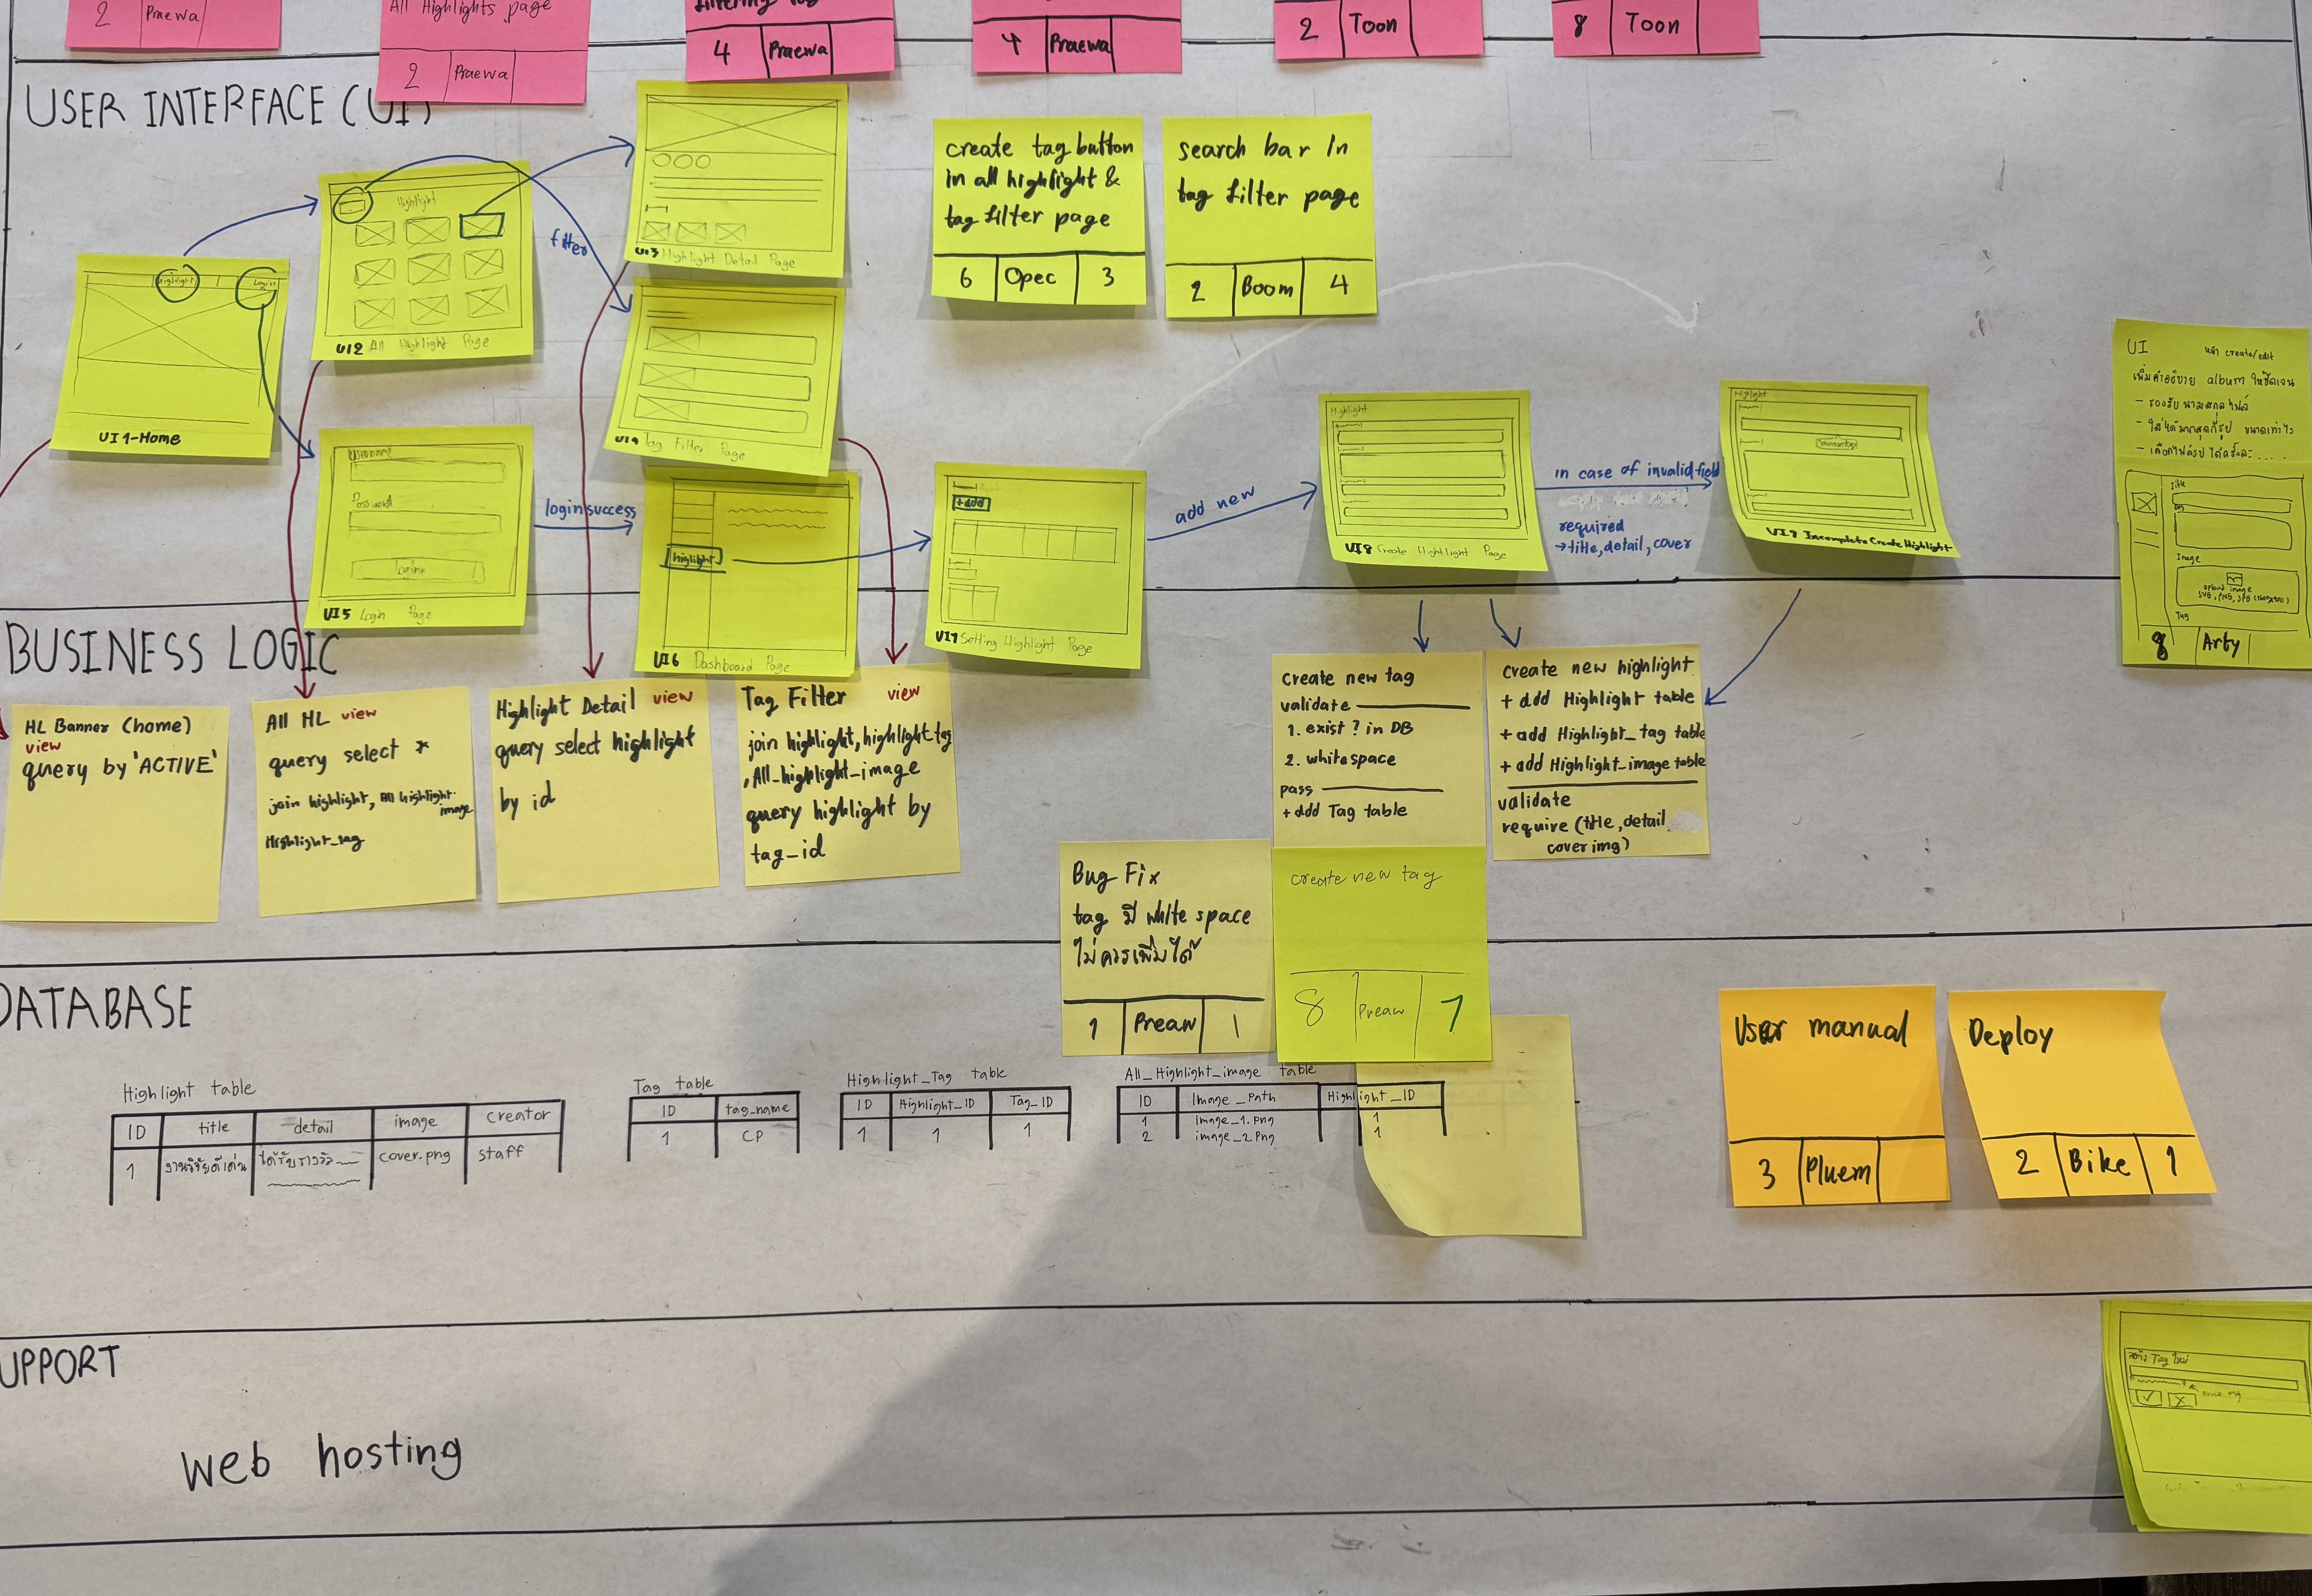 2 Praewa
All Highlights page
2 Praewa
4 Praewa
4 Praewa
2 Toon
8 Toon
USER INTERFACE (UI)
Highlight
Login
UI 1-Home
Highlight
UI2 All Highlight Page
filter
UI3 Highlight Detail Page
Tag Filter Page
Username
Password
UI5 Login Page
login success
highlight
UI6 Dashboard Page
create tag button
in all highlight &
tag filter page
6 Opec 3
search bar in
tag filter page
2 Boom 4
+add
UI7 Setting Highlight Page
add new
Highlight
UI8 Create Highlight Page
in case of invalid field
required
→title, detail, cover
Highlight
UI9 Incomplete Create Highlight
UI หน้า create/edit
เพิ่มคำอธิบาย album ให้ชัดเจน
- รองรับ นามสกุลไฟล์
- ใส่ได้มากสุดกี่รูป ขนาดเท่าไร
- เลือกไฟล์รูป ได้ครั้งละ .....
Title
Image
upload image
Tag
8 Arty
BUSINESS LOGIC
HL Banner (home)
view
query by 'ACTIVE'
All HL view
query select *
join highlight, All highlight_image
Highlight_tag
Highlight Detail view
query select highlight
by id
Tag Filter view
join highlight, highlight_tag
, All_highlight_image
query highlight by
tag_id
create new tag
validate
1. exist ? in DB
2. whitespace
pass
+ add Tag table
create new highlight
+ add Highlight table
+ add Highlight_tag table
+ add Highlight_image table
validate
require (title, detail
cover img)
Bug Fix
tag มี white space
ไม่ควรเพิ่มได้
1 Preaw 1
create new tag
8 Preaw 7
DATABASE
Highlight table
ID title detail image creator
1 งานวิจัยดีเด่น ได้รับรางวัล cover.png staff
Tag table
ID tag_name
1 CP
Highlight_Tag table
ID Highlight_ID Tag_ID
1 1 1
All_Highlight_image table
ID Image_Path Highlight_ID
1 image_1.png 1
2 image_2.png 1
User manual
3 Pluem
Deploy
2 Bike 1
UPPORT
web hosting
สร้าง Tag ใหม่